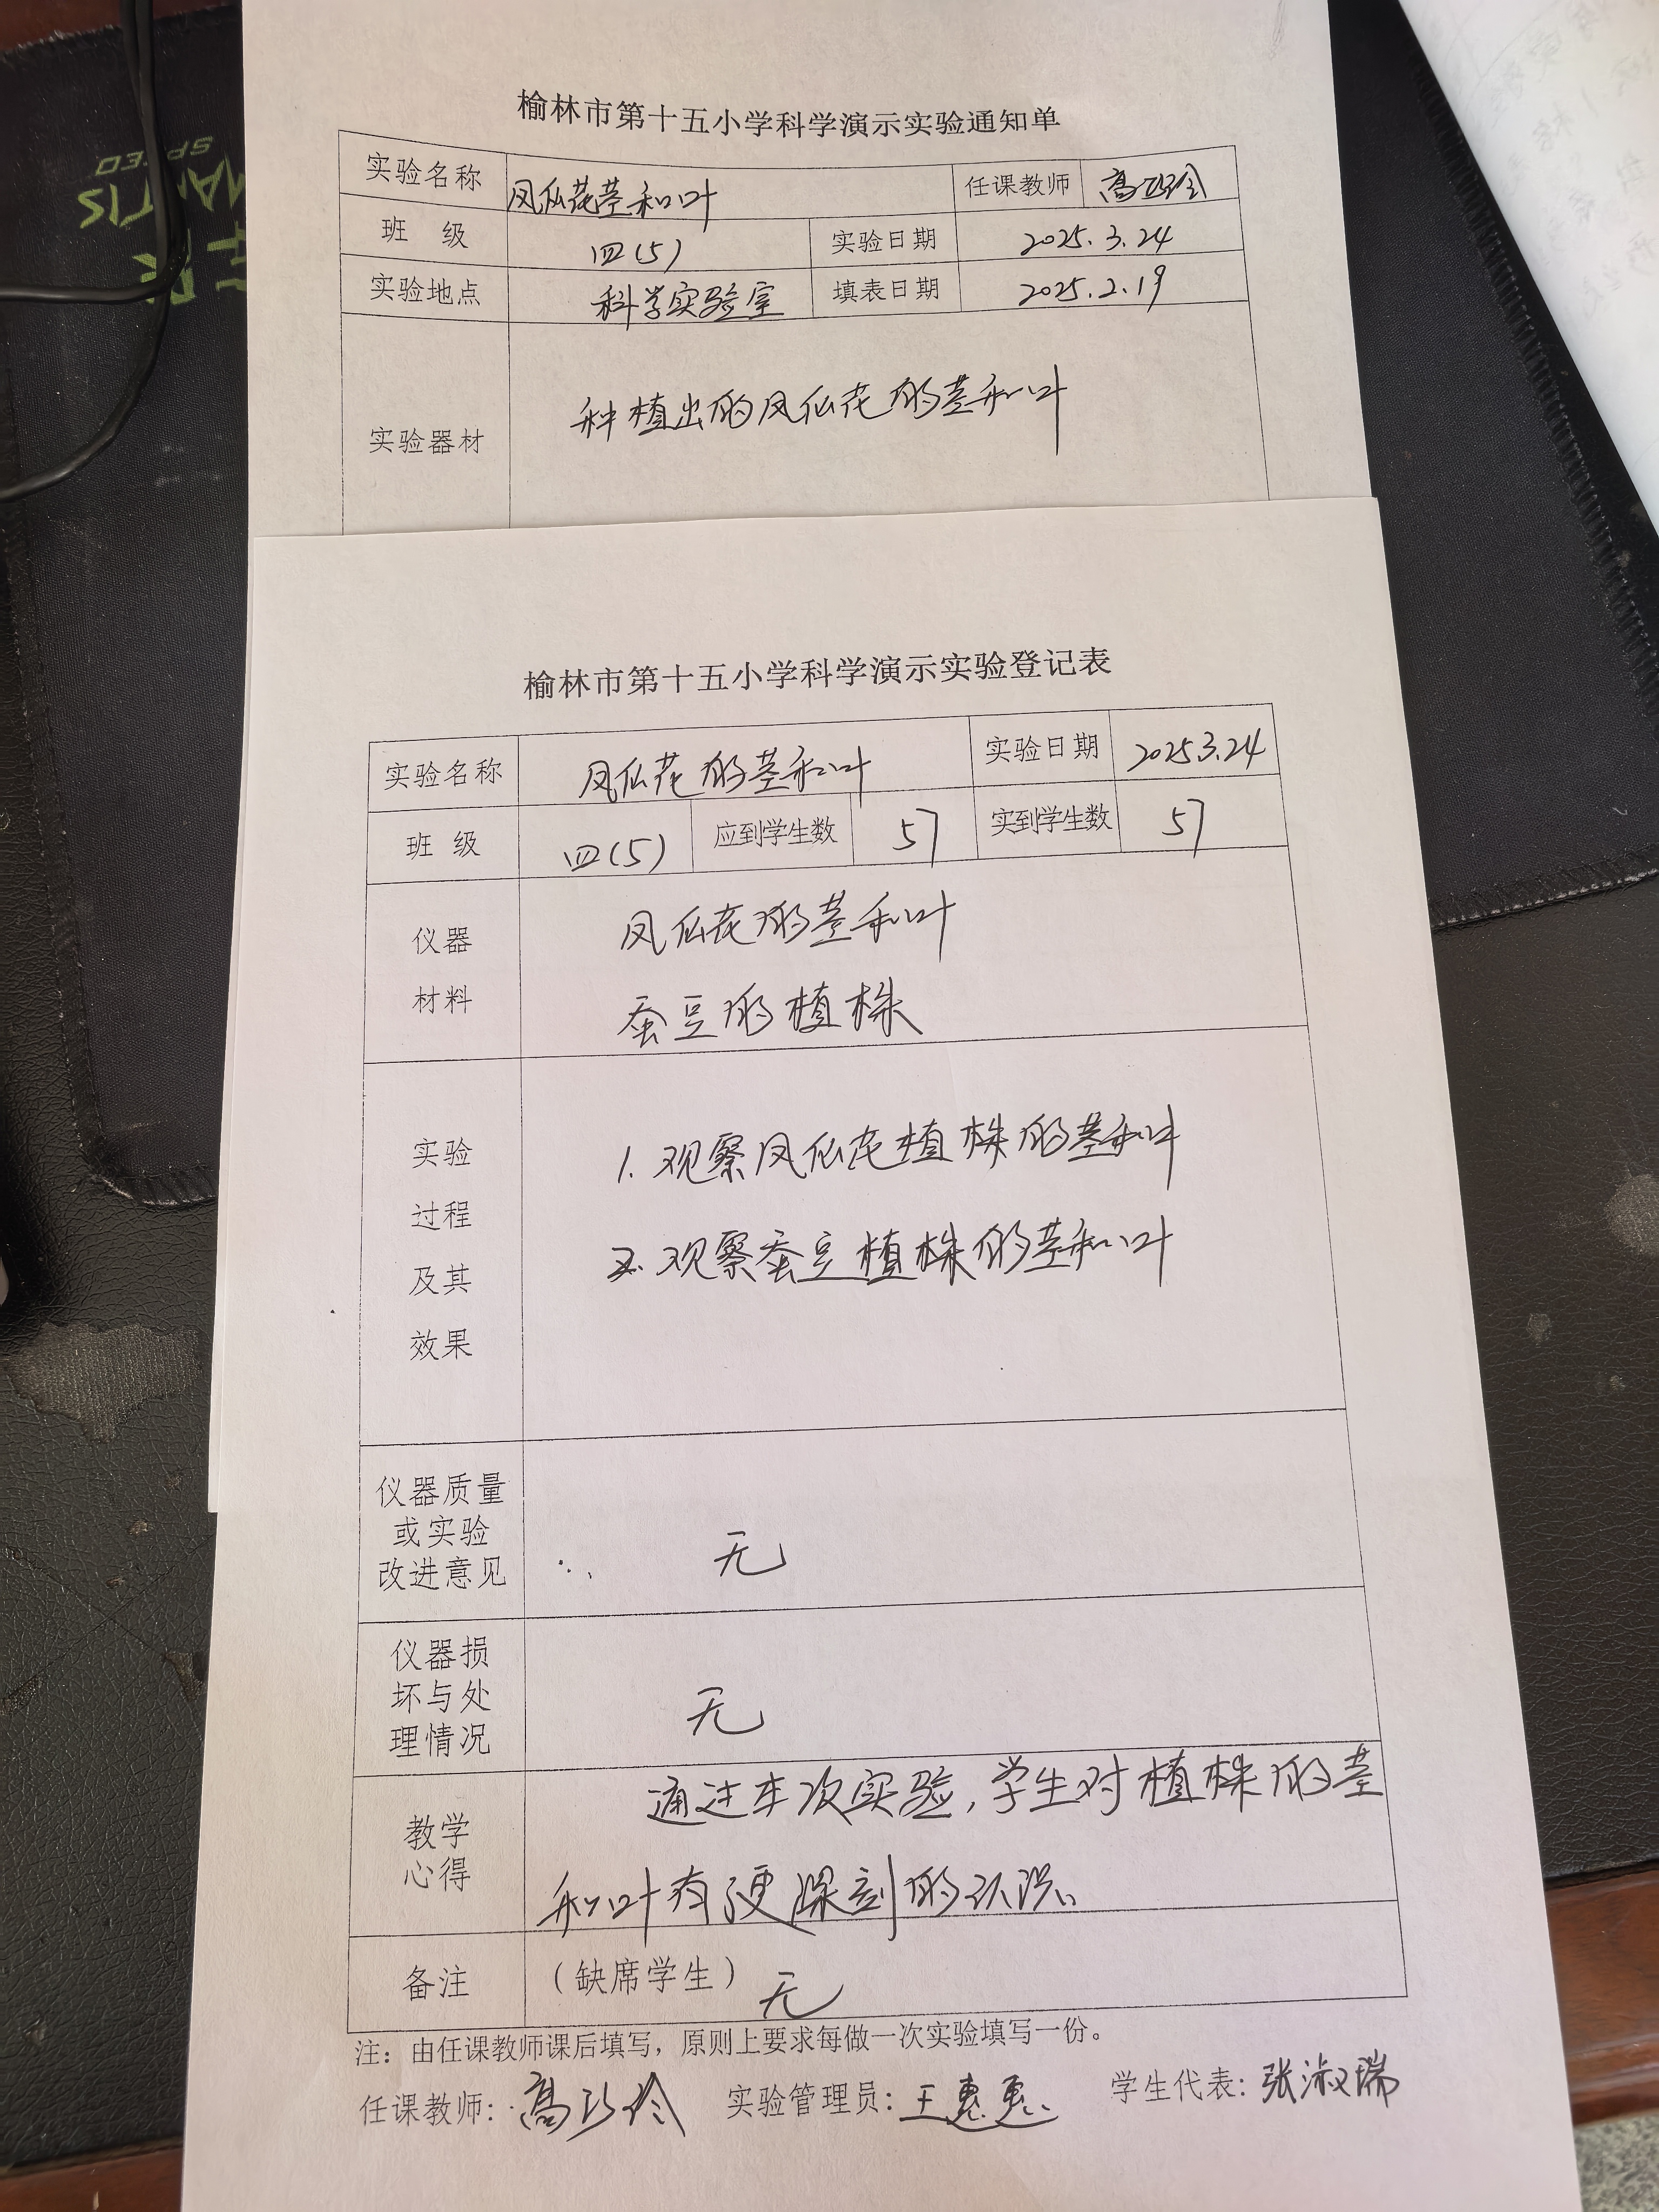 榆林市第十五小学科学演示实验通知单
实验名称 凤仙花茎和叶 任课教师 高巧玲
班 级 四(5) 实验日期 2025.3.24
实验地点 科学实验室 填表日期 2025.2.19
实验器材 种植出的凤仙花的茎和叶
榆林市第十五小学科学演示实验登记表
实验名称 凤仙花的茎和叶 实验日期 2025.3.24
班 级 四(5) 应到学生数 57 实到学生数 57
仪器 凤仙花的茎和叶
材料 蚕豆的植株
实验 1.观察凤仙花植株的茎和叶
过程
及其 2.观察蚕豆植株的茎和叶
效果
仪器质量
或实验
改进意见 无
仪器损
坏与处
理情况 无
教学 通过本次实验,学生对植株的茎
心得 和叶有更深刻的认识。
备注 (缺席学生) 无
注：由任课教师课后填写，原则上要求每做一次实验填写一份。
任课教师: 高巧玲 实验管理员: 王惠惠 学生代表: 张淑瑞
SPEED
MANTIS